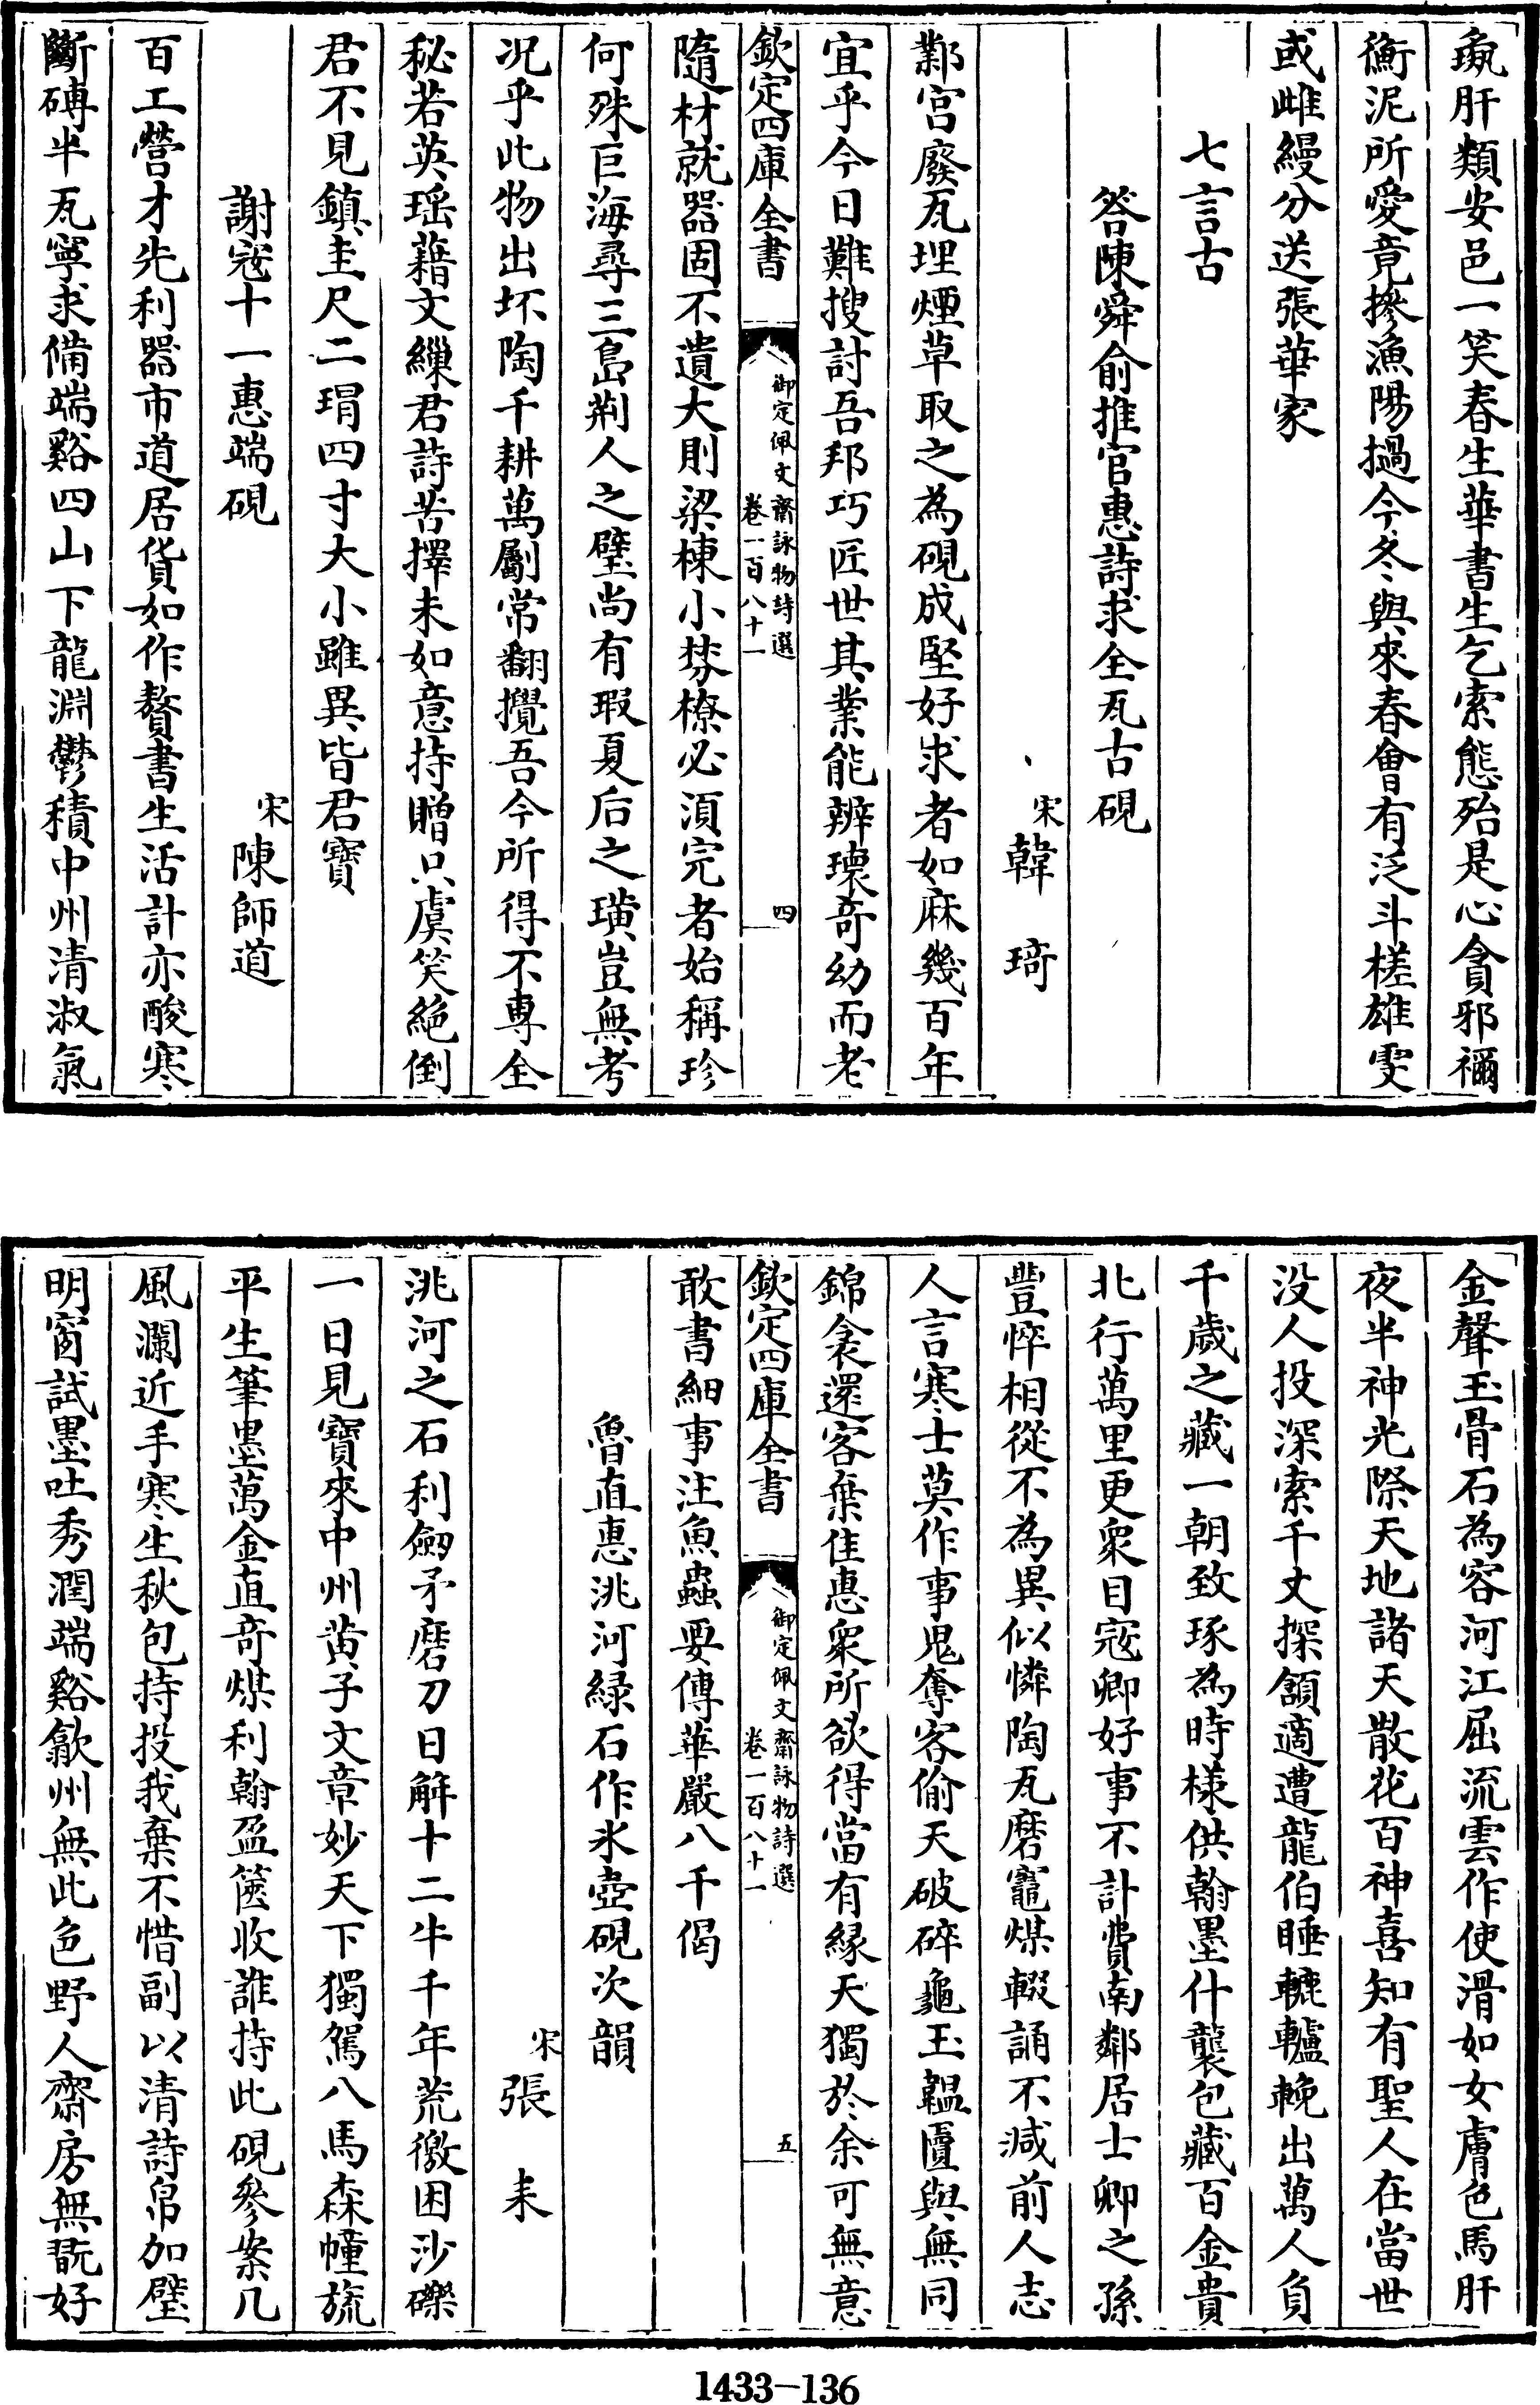 觙肝類安邑一笑春生華書生乞索態殆是心貪邪禰
衡泥所愛竟摻漁陽撾今冬與來春會有泛斗槎雄雯
或雌縵分送張華家
七言古
答陳舜俞推官惠詩求全瓦古硯
宋韓琦
鄴宫廢瓦埋煙草取之為硯成堅好求者如麻幾百年
宜乎今日難搜討吾邦巧匠世其業能辨瓌奇幼而老
欽定四庫全書
御定佩文齋詠物詩選
卷一百八十一
四
隨材就器固不遺大則梁棟小棼橑必須完者始稱珍
何殊巨海尋三島荆人之璧尚有瑕夏后之璜豈無考
况乎此物出坏陶千耕萬斸常翻攪吾今所得不專全
秘若英瑶藉文繅君詩苦擇未如意持贈只虞笑絕倒
君不見鎮圭尺二瑁四寸大小雖異皆君寶
謝寇十一惠端硯
宋陳師道
百工營才先利器市道居貨如作贅書生活計亦酸寒
斷磚半瓦寧求備端谿四山下龍淵鬱積中州清淑氣
金聲玉骨石為容河江屈流雲作使滑如女膚色馬肝
夜半神光際天地諸天散花百神喜知有聖人在當世
没人投深索千丈探頷適遭龍伯睡轆轤輓出萬人負
千歲之藏一朝致琢為時樣供翰墨什襲包藏百金貴
北行萬里更衆目寇卿好事不計費南鄰居士卿之孫
豐悴相從不為異似憐陶瓦磨竈煤輟誦不減前人志
人言寒士莫作事鬼奪客偷天破碎龜玉韞匵與無同
錦衾還客棄佳惠衆所欲得當有緣天獨於余可無意
欽定四庫全書
御定佩文齋詠物詩選
卷一百八十一
五
敢書細事注魚蟲要傳華嚴八千偈
魯直惠洮河緑石作氷壺硯次韻
宋張耒
洮河之石利劒矛磨刀日解十二牛千年荒徼困沙礫
一日見寶來中州黄子文章妙天下獨駕八馬森幢旒
平生筆墨萬金直奇煤利翰盈篋收誰持此硯參案几
風瀾近手寒生秋包持投我棄不惜副以清詩帛加璧
明窗試墨吐秀潤端谿歙州無此色野人齋房無翫好
1433-136